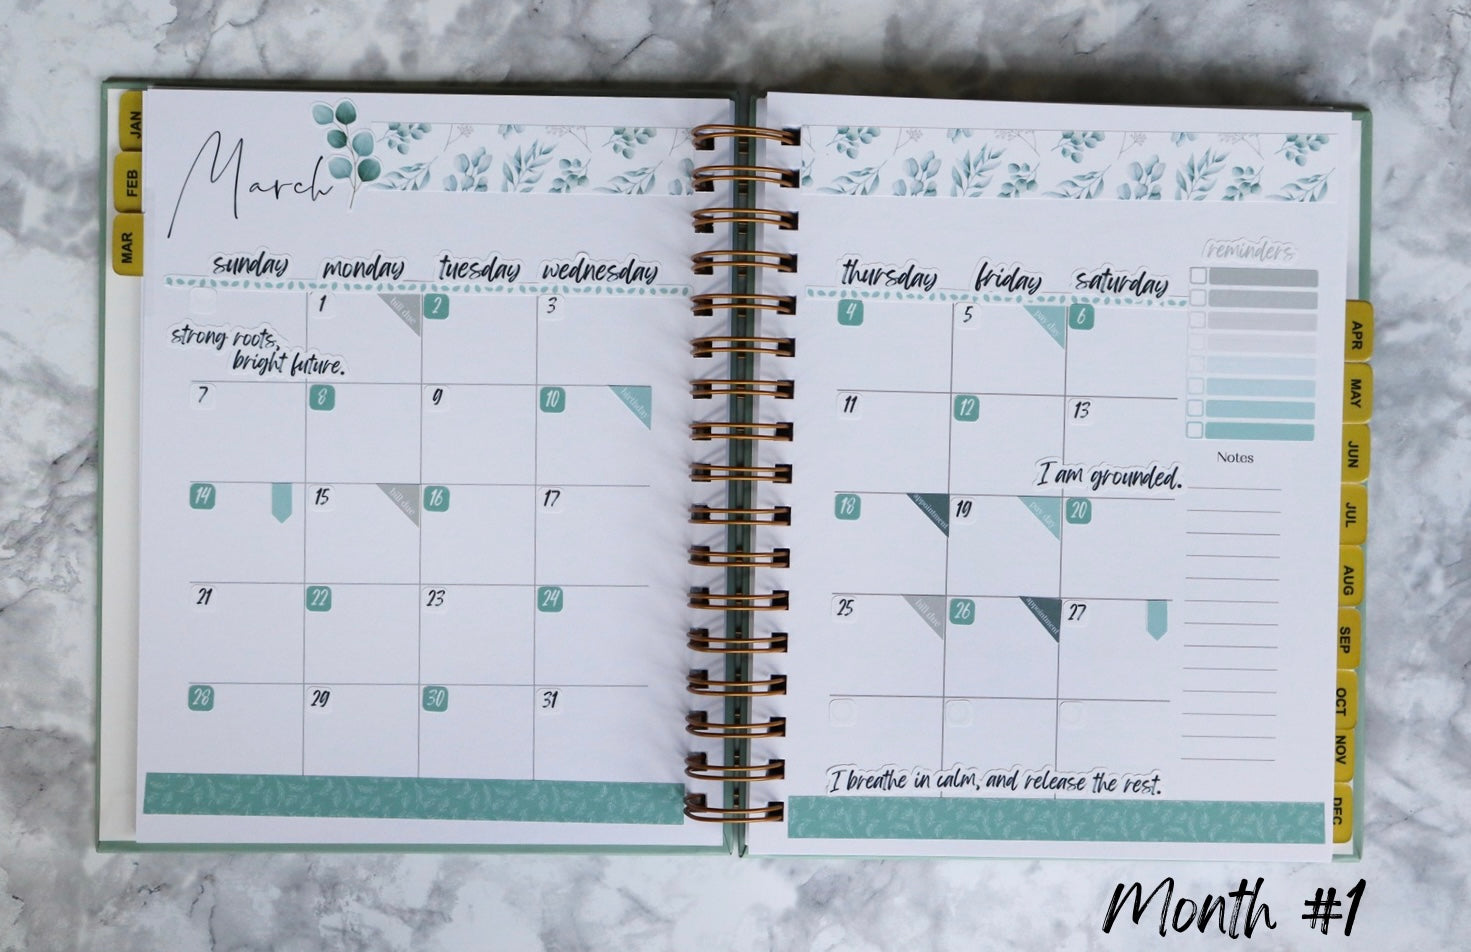 JAN
FEB
MAR
March
sunday monday tuesday wednesday
1 bill due 2 3
strong roots,
bright future.
7 8 9 10 birthday
14 15 bill due 16 17
21 22 23 24
28 29 30 31
thursday friday saturday
4 5 pay day 6
11 12 13
I am grounded.
18 appointment 19 pay day 20
25 bill due 26 appointment 27
I breathe in calm, and release the rest.
reminders
Notes
APR
MAY
JUN
JUL
AUG
SEP
OCT
NOV
DEC
Month #1